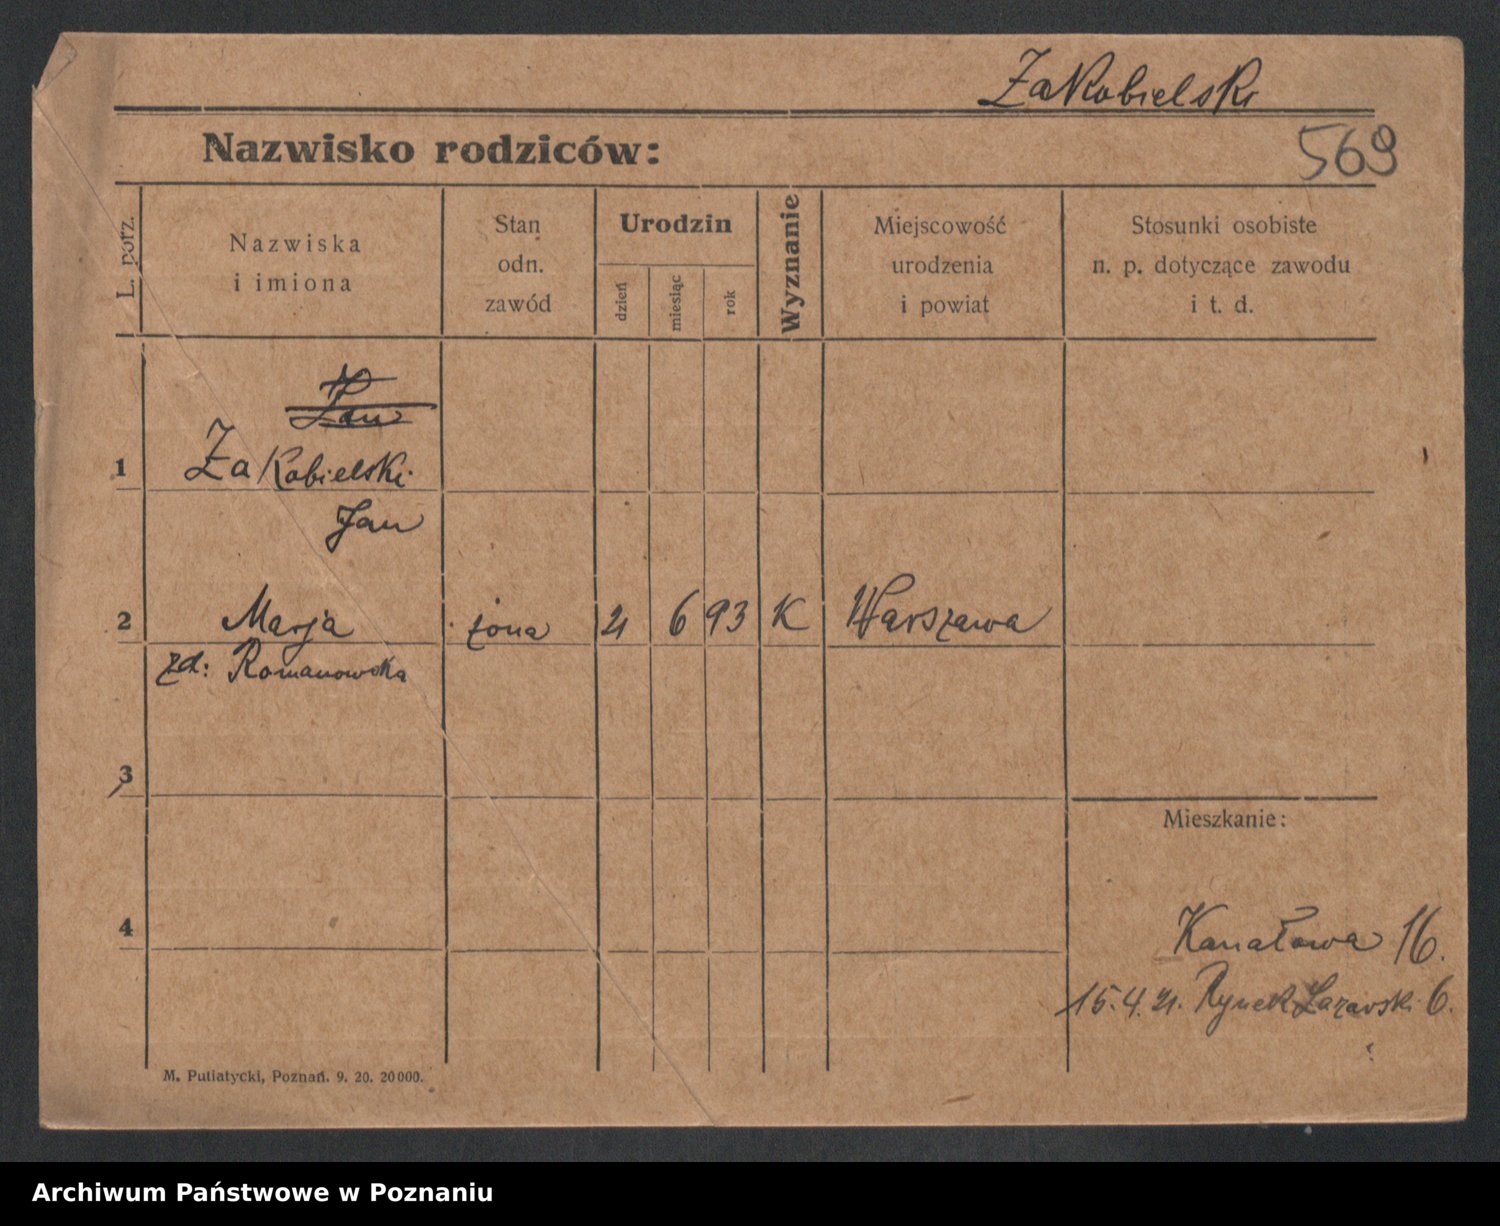 Zakobielski
Nazwisko rodziców:
569
L. porz.
Nazwiska
i imiona
Stan
odn.
zawód
Urodzin
dzień
miesiąc
rok
Wyznanie
Miejscowość
urodzenia
i powiat
Stosunki osobiste
n. p. dotyczące zawodu
i t. d.
Jan
1 Zakobielski
Jan
2 Marja żona 21 6 93 K Warszawa
zd: Romanowska
3
Mieszkanie:
4
Kanałowa 16.
15.4.21. Rynek Łazarski 6.
M. Putiatycki, Poznań. 9. 20. 20000.
Archiwum Państwowe w Poznaniu